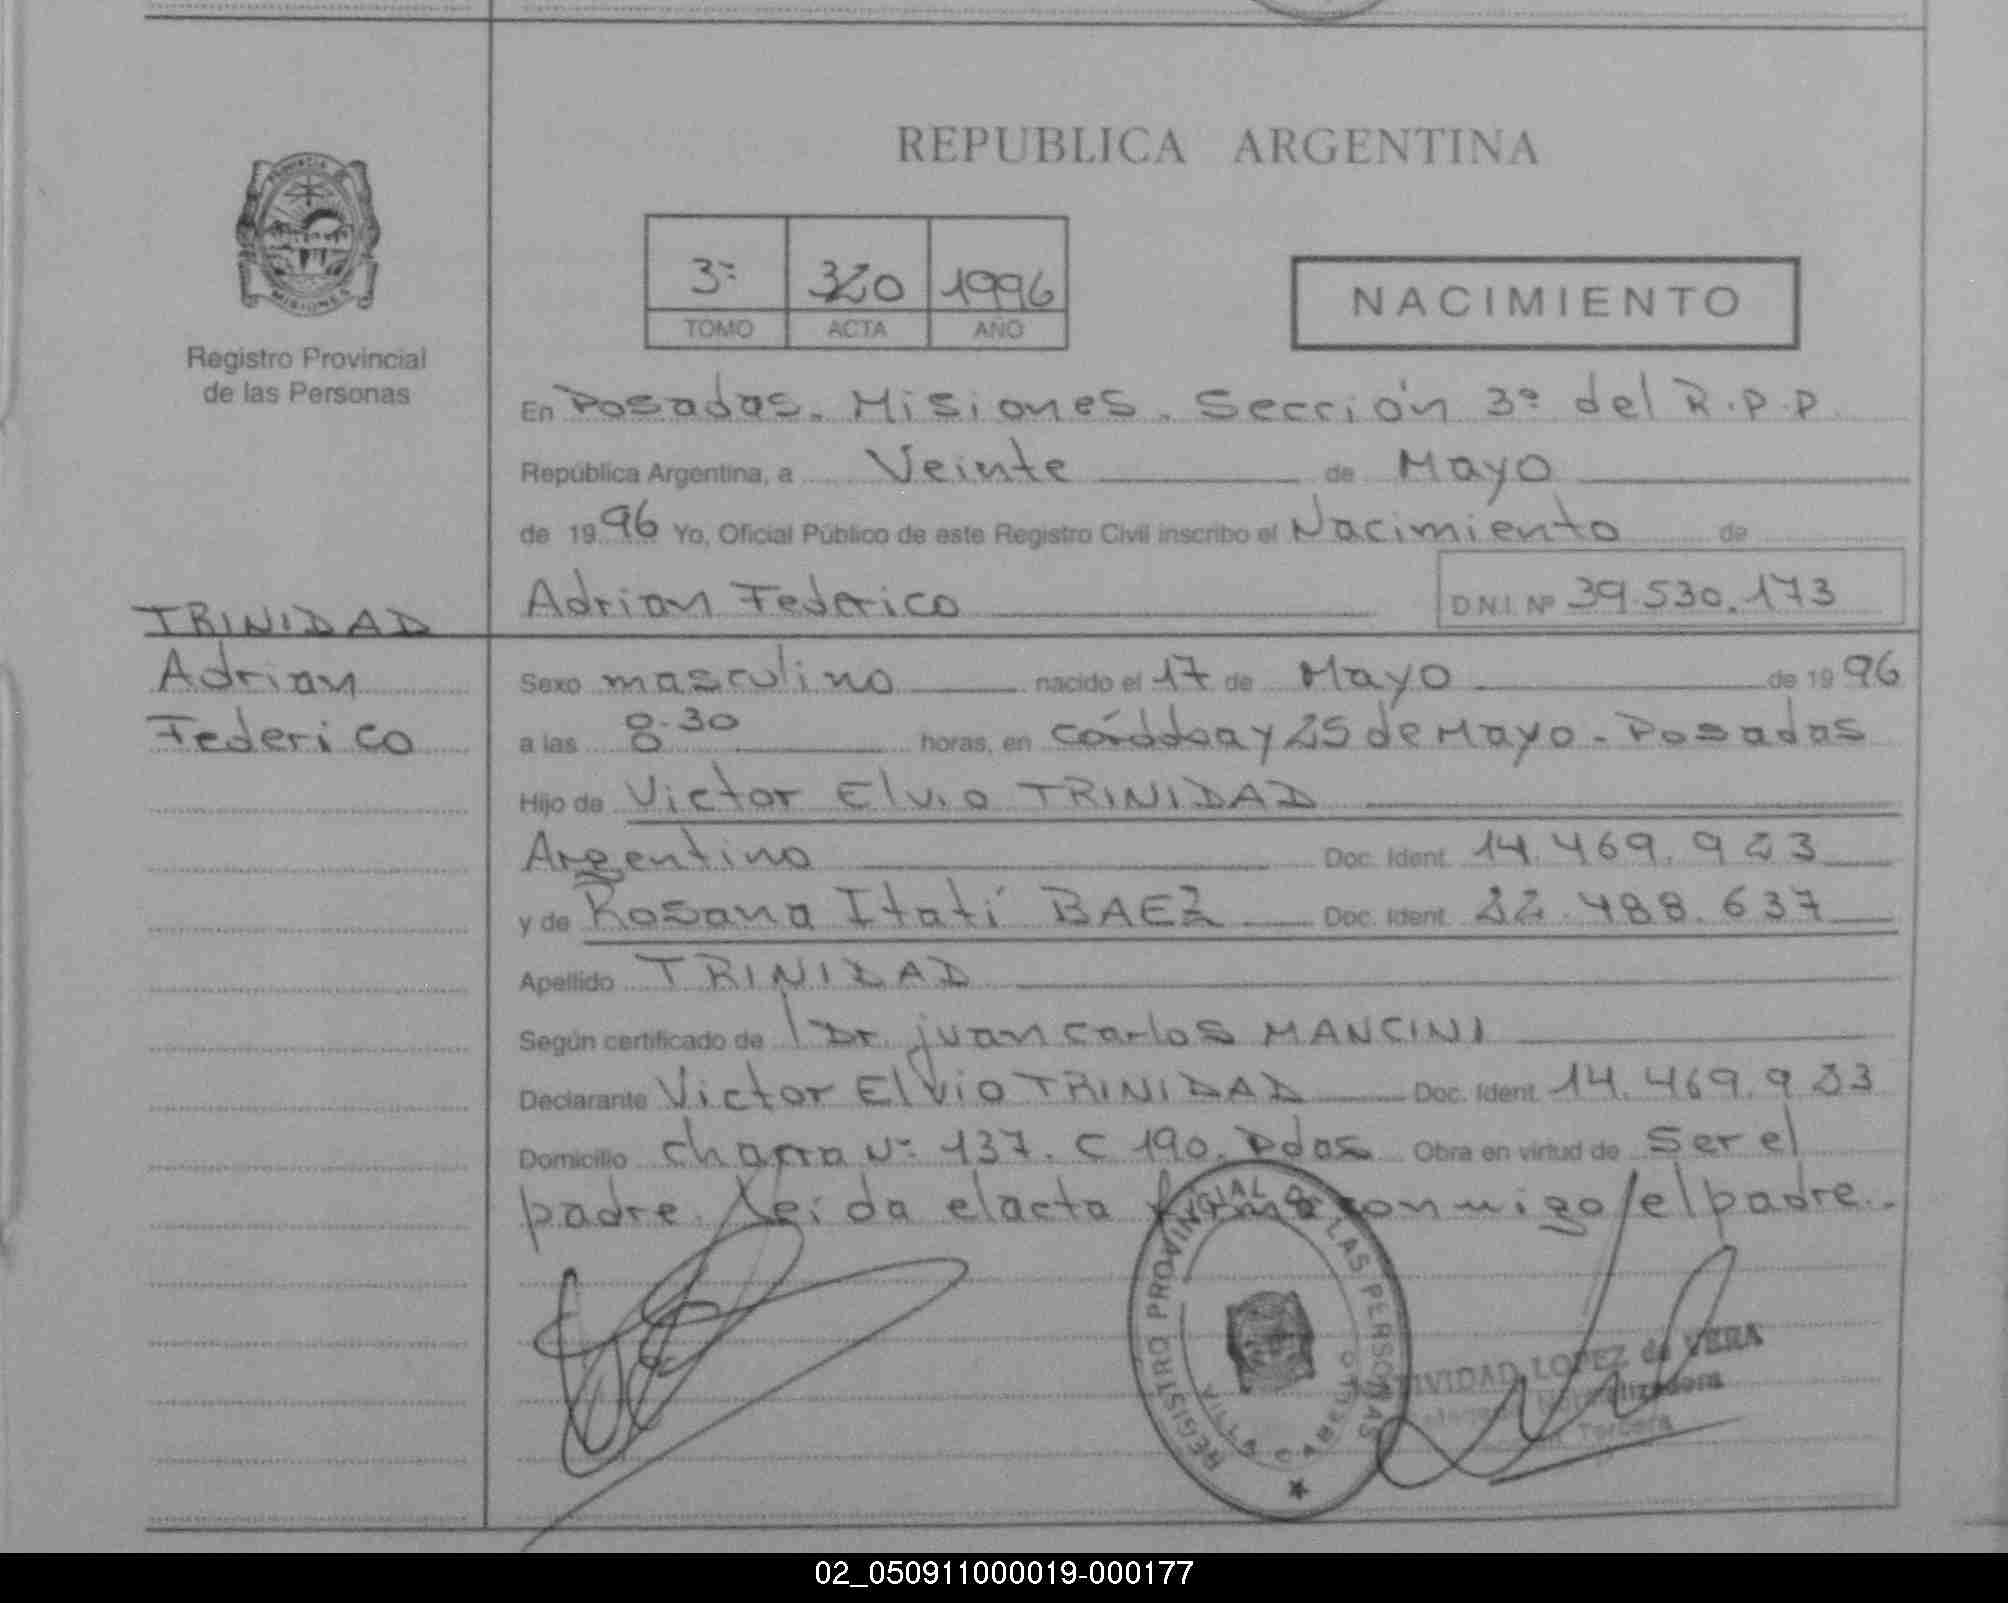 REPUBLICA ARGENTINA
PROVINCIA
MISIONES
Registro Provincial
de las Personas
3º 320 1996
TOMO ACTA AÑO
NACIMIENTO
En Posadas. Misiones. Sección 3º del R.P.P.
República Argentina, a Veinte de Mayo
de 1996 Yo, Oficial Público de este Registro Civil inscribo el Nacimiento de
Adrian Federico D.N.I. Nº 39.530.173
TRINIDAD
Adrian
Federico
Sexo masculino nacido el 17 de Mayo de 1996
a las 8.30 horas, en y 25 de Mayo - Posadas
Hijo de Victor Elvio TRINIDAD
Argentino Doc. Ident. 14.469.923
y de Rosana Itatí BAEZ Doc. Ident. 22.488.637
Apellido TRINIDAD
Según certificado de Dr. juan carlos MANCINI
Declarante Victor Elvio TRINIDAD Doc. Ident. 14.469.923
Domicilio chacra Nº 137. C 190. Pdas Obra en virtud de ser el
padre. Leida el acta firma conmigo el padre.
REGISTRO PROVINCIAL DE LAS PERSONAS
VILLA CABELLO
LOPEZ de VERA
Tercera
02_050911000019-000177